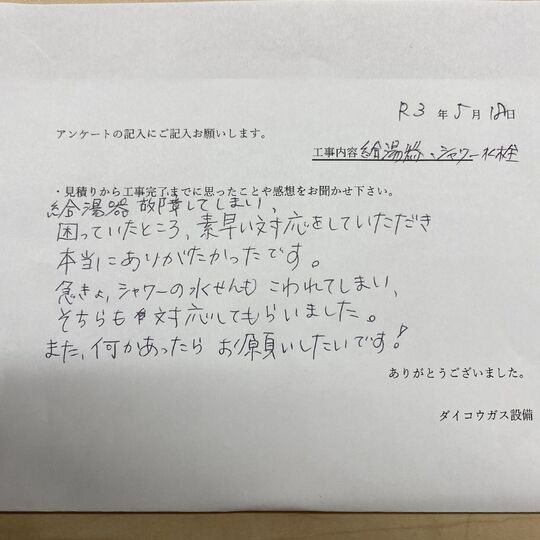 R3 年 5 月 18 日
アンケートの記入にご記入お願いします。
工事内容 給湯器、シャワー水栓
・見積りから工事完了までに思ったことや感想をお聞かせ下さい。
給湯器故障してしまい、
困っていたところ、素早い対応をしていただき
本当にありがたかったです。
急きょ、シャワーの水せんも こわれてしまい、
そちらも対応してもらいました。
また、何かあったら お願いしたいです!
ありがとうございました。
ダイコウガス設備